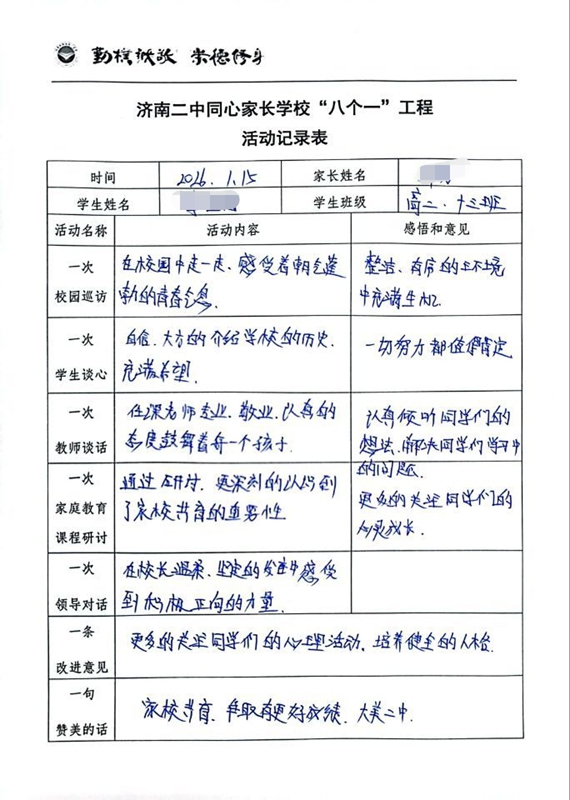 勤朴诚毅 崇德修身
济南二中同心家长学校“八个一”工程
活动记录表
时间 2026.1.15 家长姓名
学生姓名 学生班级 高二.十三班
活动名称 活动内容 感悟和意见
一次
校园巡访
在校园中走一走、感受着朝气蓬
勃的青春气息.
整洁、有序的环境
中充满生机.
一次
学生谈心
自信、大方的介绍学校的历史.
充满希望.
一切努力都值得肯定
一次
教师谈话
任课老师专业、敬业、认真的
态度鼓舞着每一个孩子.
认真倾听同学们的
想法、解决同学们学习中
的问题.
一次
家庭教育
课程研讨
通过研讨、更深刻的认识到
了家校共育的重要性
更多的关注同学们的
心理成长.
一次
领导对话
在校长温柔、坚定的发言中感受
到积极正向的力量.
一条
改进意见
更多的关注同学们的心理活动、培养健全的人格.
一句
赞美的话
家校共育、争取再更好成绩、大美二中.